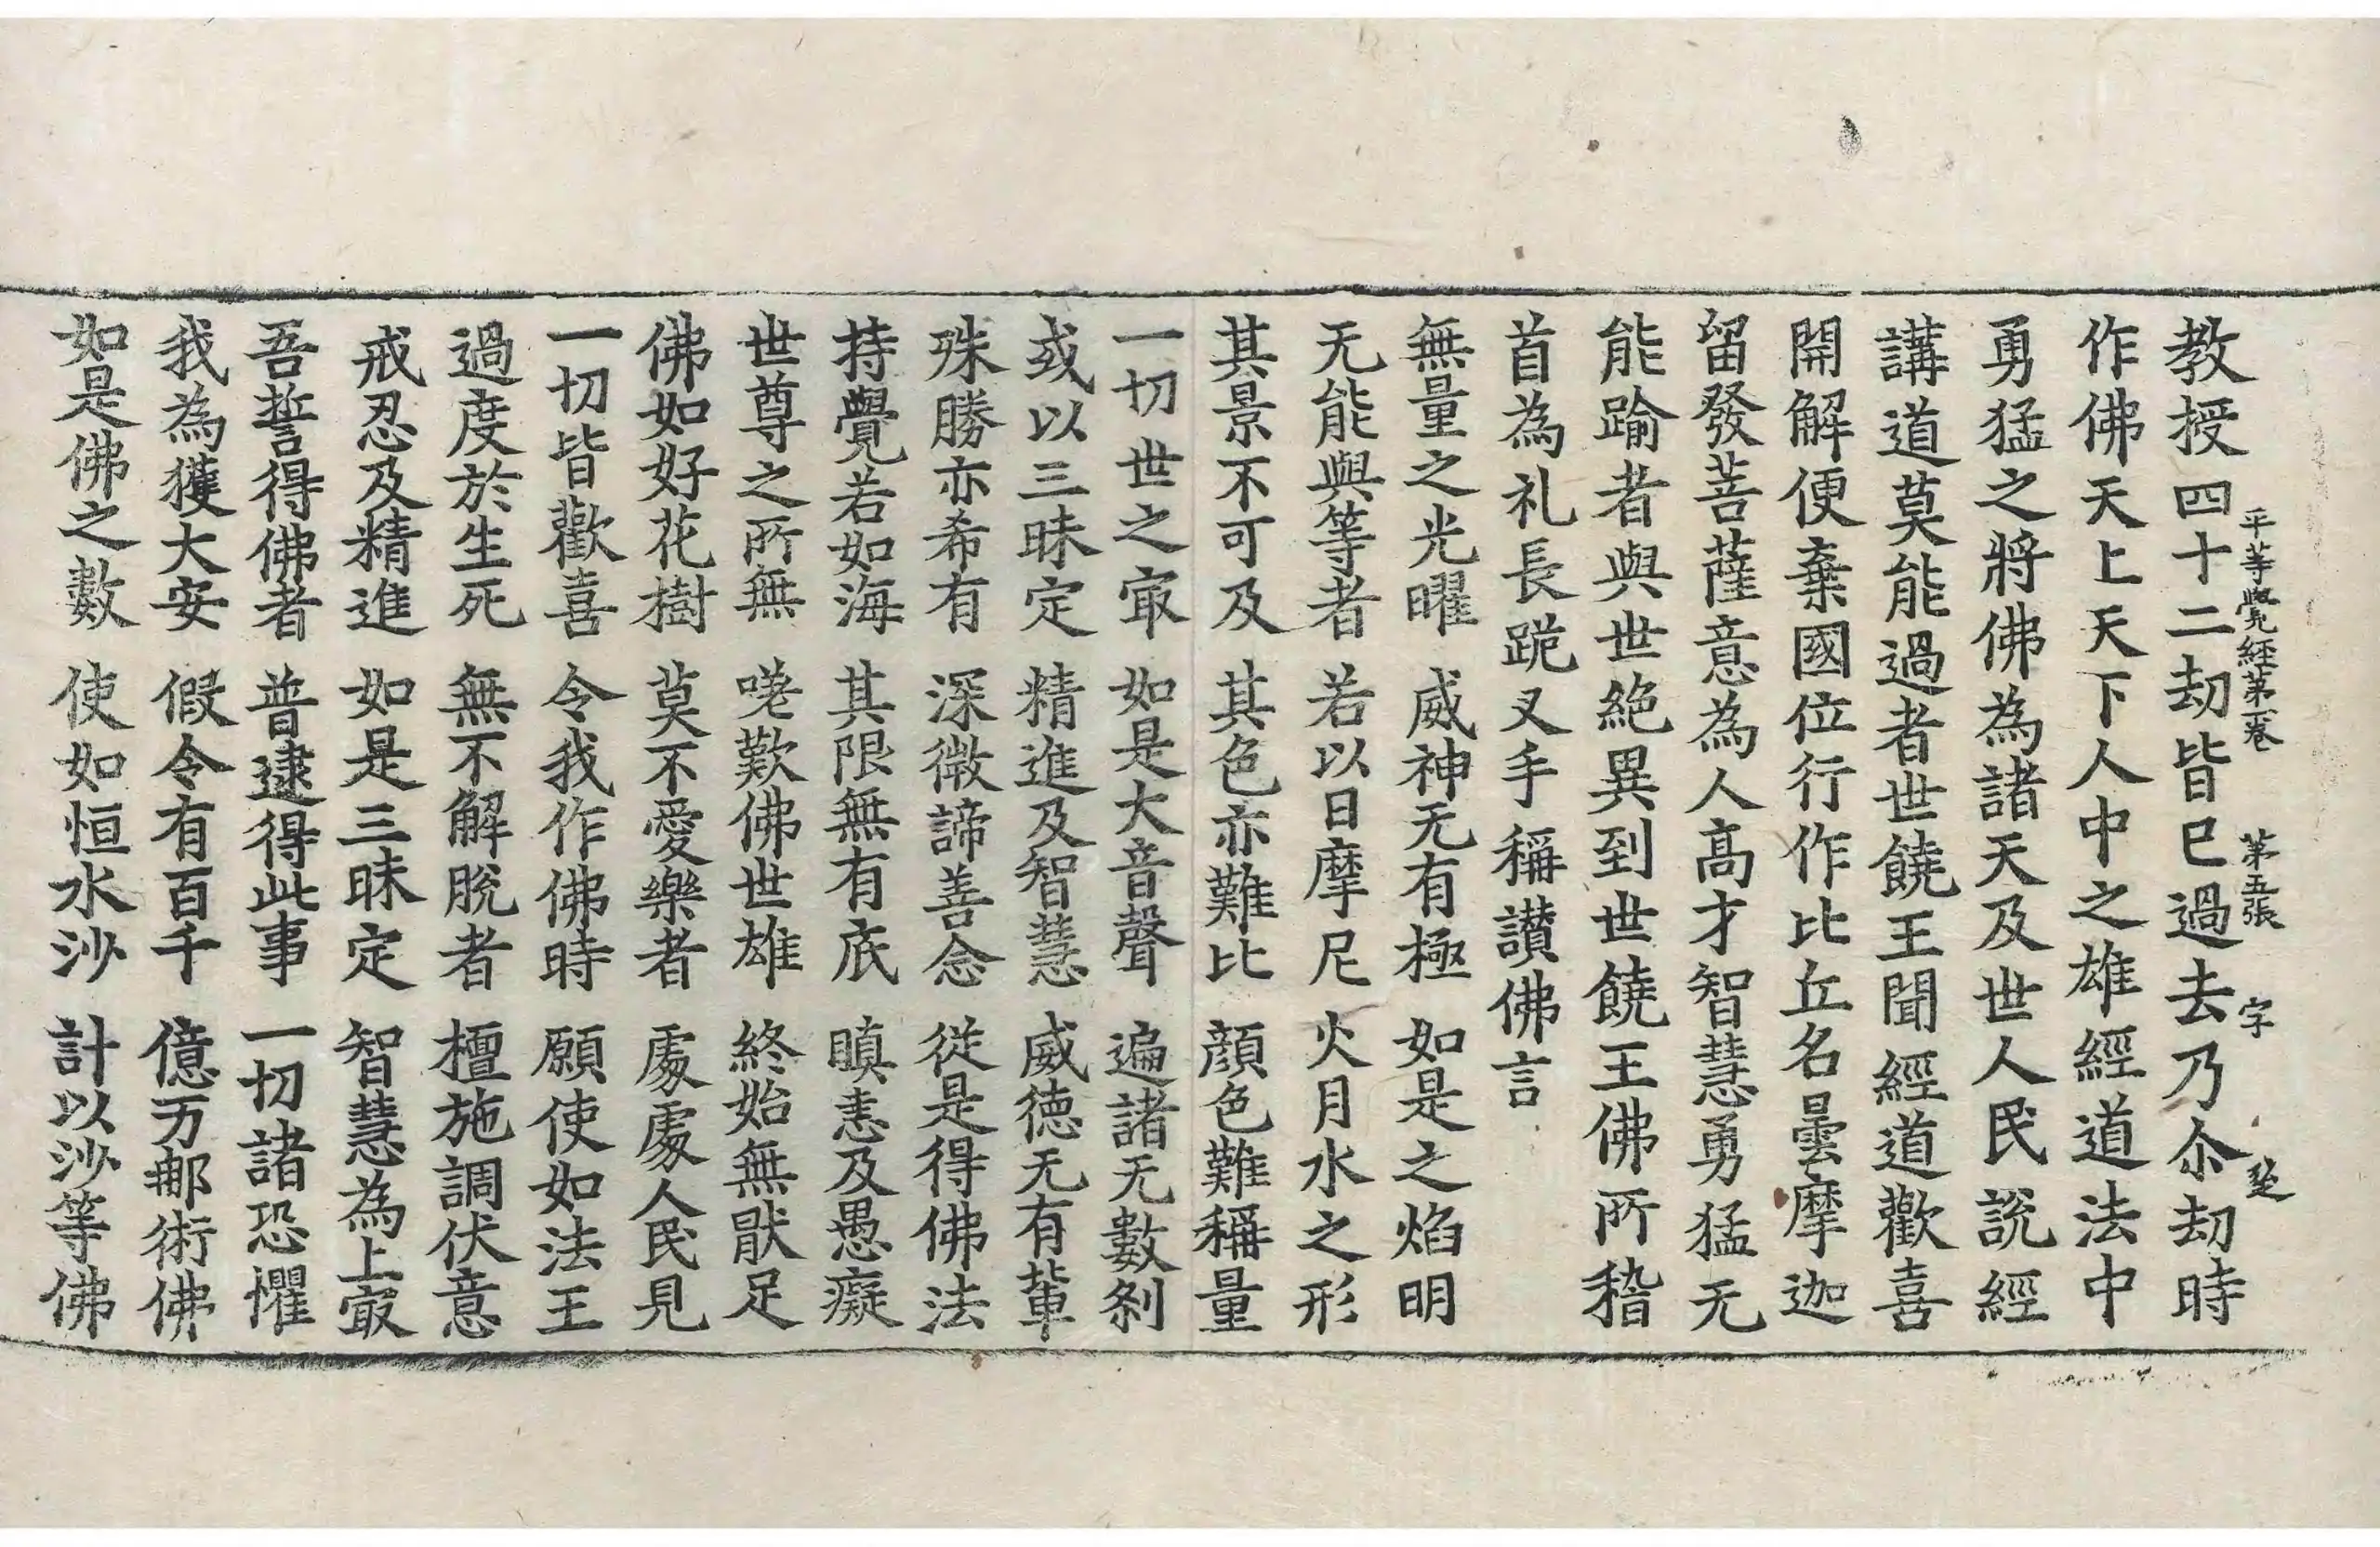 教授四十二劫皆已過去乃尒劫時
平等覺經第一卷 第五張 字
作佛天上天下人中之雄經道法中
勇猛之將佛為諸天及世人民說經
講道莫能過者世饒王聞經道歡喜
開解便棄國位行作比丘名曇摩迦
留發菩薩意為人高才智慧勇猛无
能踰者與世絕異到世饒王佛所稽
首為礼長跪叉手稱讃佛言
無量之光曜 威神无有極 如是之焰明
无能與等者 若以日摩尼 火月水之形
其景不可及 其色亦難比 顏色難稱量
一切世之㝡 如是大音聲 遍諸无數剎
或以三昧定 精進及智慧 威德无有輩
殊勝亦希有 深微諦善念 從是得佛法
持覺若如海 其限無有底 瞋恚及愚癡
世尊之所無 嗟歎佛世雄 終始無猒足
佛如好花樹 莫不愛樂者 處處人民見
一切皆歡喜 令我作佛時 願使如法王
過度於生死 無不解脫者 檀施調伏意
戒忍及精進 如是三昧定 智慧為上㝡
吾誓得佛者 普逮得此事 一切諸恐懼
我為獲大安 假令有百千 億万那術佛
如是佛之數 使如恒水沙 計以沙等佛